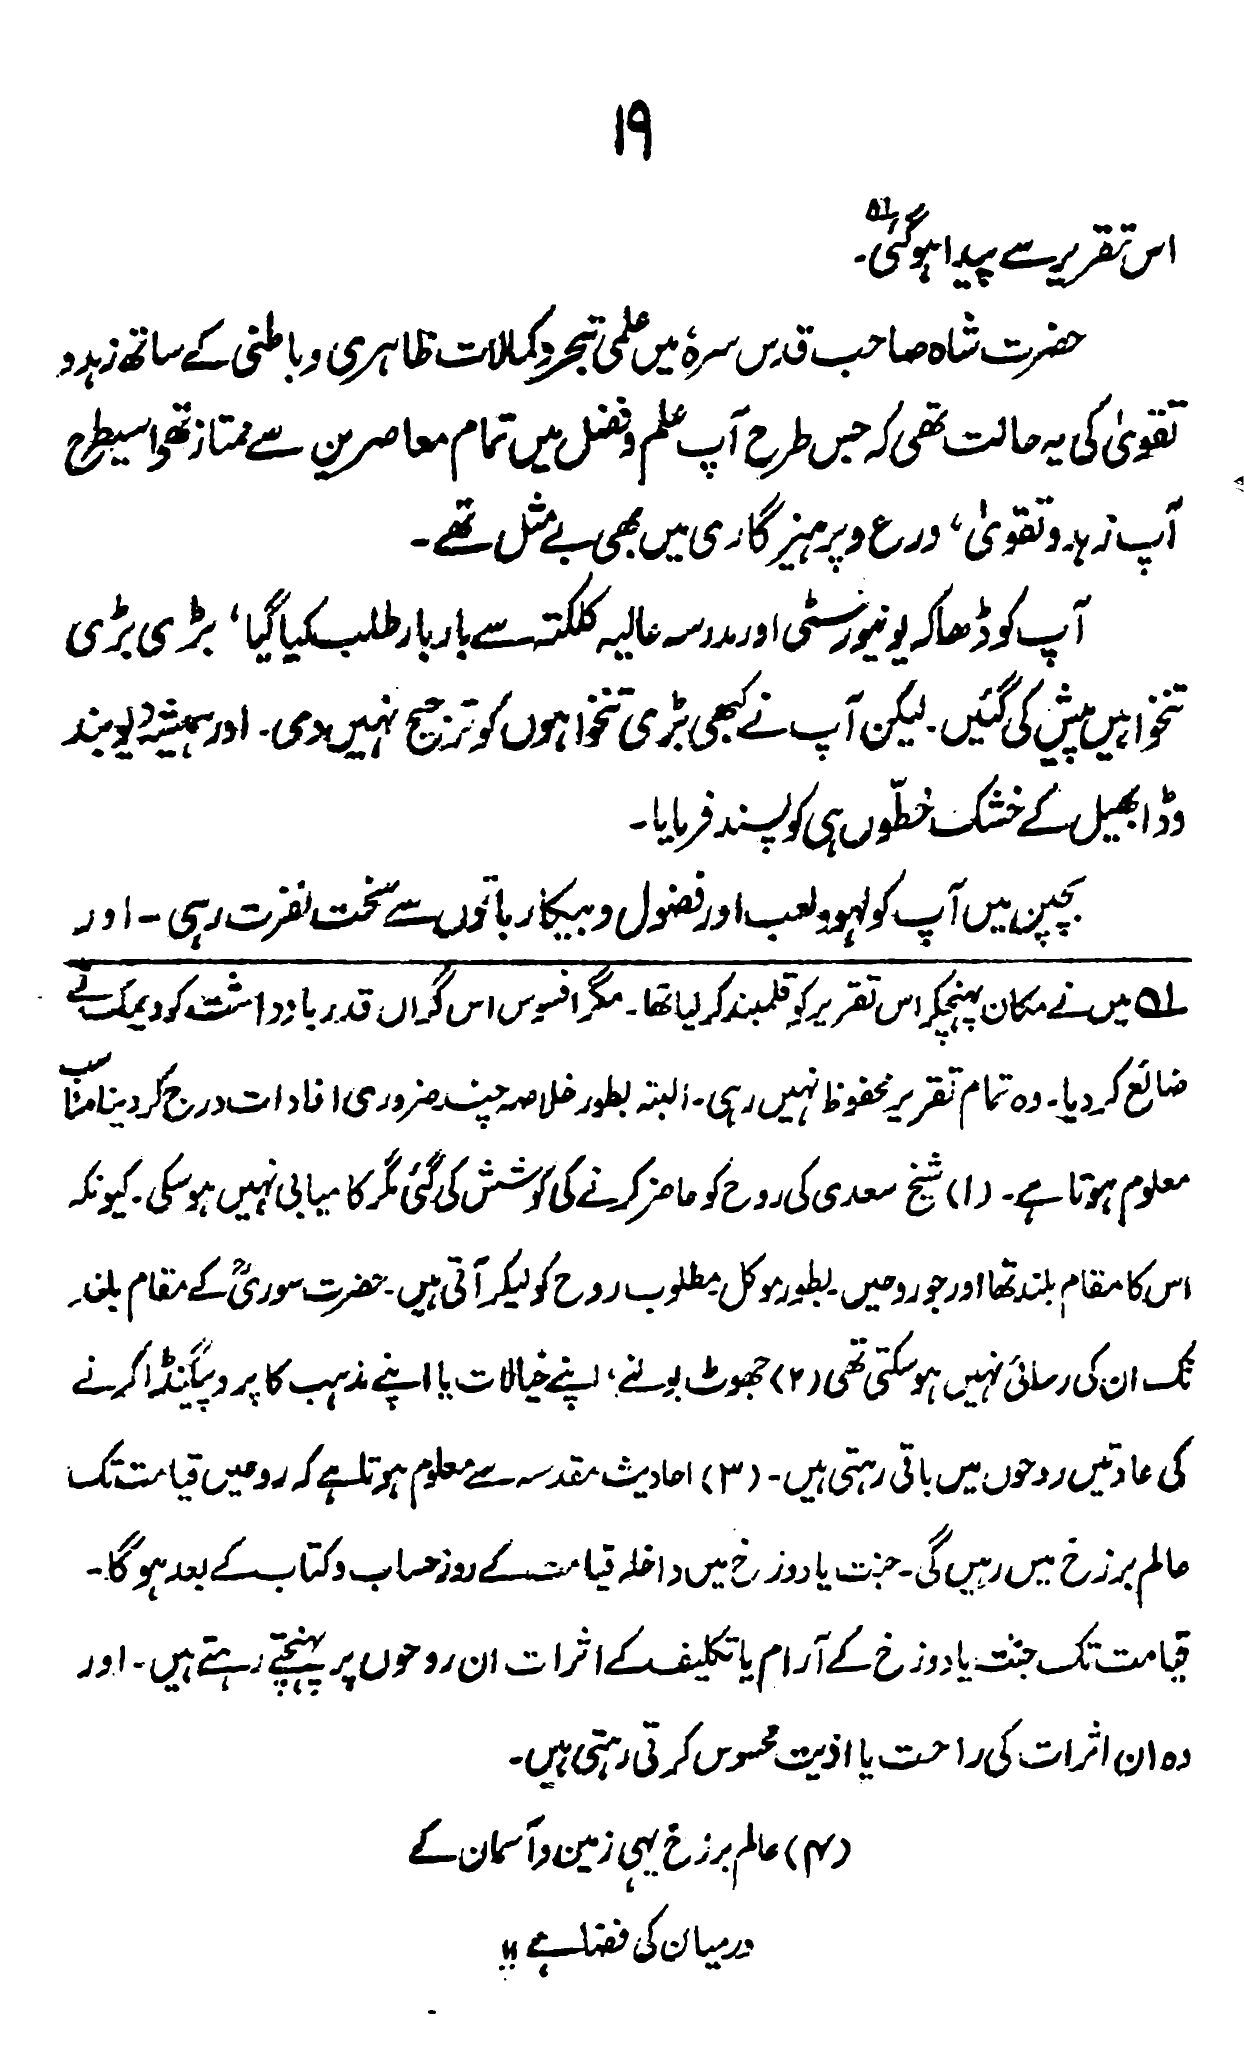 ۱۹
اس تقریر سے پیدا ہوگئی۔ لہ
حضرت شاہ صاحب قدس سرہٗ میں علمی تبحر و کمالات ظاہری و باطنی کے ساتھ زہد و
تقویٰ کی یہ حالت تھی کہ جس طرح آپ علم و فضل میں تمام معاصرین سے ممتاز تھے اسیطرح
آپ زہد و تقویٰ، ورع و پرہیز گاری میں بھی بے مثل تھے۔
آپ کو ڈھاکہ یونیورسٹی اور مدرسہ عالیہ کلکتہ سے بار بار طلب کیا گیا، بڑی بڑی
تنخواہیں پیش کی گئیں۔ لیکن آپ نے کبھی بڑی تنخواہوں کو ترجیح نہیں دی۔ اور ہمیشہ دیوبند
وڈابھیل کے خشک خطّوں ہی کو پسند فرمایا۔
بچپن میں آپ کو لہو و لعب اور فضول و بیکار باتوں سے سخت نفرت رہی ۔ اور
لہ میں نے مکان پہنچکر اس تقریر کو قلمبند کر لیا تھا۔ مگر افسوس اس گراں قدر یادداشت کو دیمک نے
ضائع کر دیا۔ وہ تمام تقریر محفوظ نہیں رہی۔ البتہ بطور خلاصہ چند ضروری افادات درج کر دینا مناسب
معلوم ہوتا ہے۔ (۱) شیخ سعدی کی روح کو حاضر کرنے کی کوشش کی گئی مگر کامیابی نہیں ہوسکی۔ کیونکہ
اس کا مقام بلند تھا اور جو روحیں۔ بطور موکل مطلوب روح کو لیکر آتی ہیں۔ حضرت سوریؒ کے مقام بلند
تک ان کی رسائی نہیں ہو سکتی تھی (۲) جھوٹ بولنے، اپنے خیالات یا اپنے مذہب کا پروپیگنڈا کرنے
کی عادتیں روحوں میں باقی رہتی ہیں۔ (۳) احادیث مقدسہ سے معلوم ہوتا ہے کہ روحیں قیامت تک
عالم برزخ میں رہیں گی۔ جنت یا دوزخ میں داخلہ قیامت کے روز حساب و کتاب کے بعد ہوگا۔
قیامت تک جنت یا دوزخ کے آرام یا تکلیف کے اثرات ان روحوں پر پہنچتے رہتے ہیں۔ اور
وہ ان اثرات کی راحت یا اذیت محسوس کرتی رہتی ہیں۔
(۴) عالم برزخ یہی زمین و آسمان کے
درمیان کی فضا ہے !!